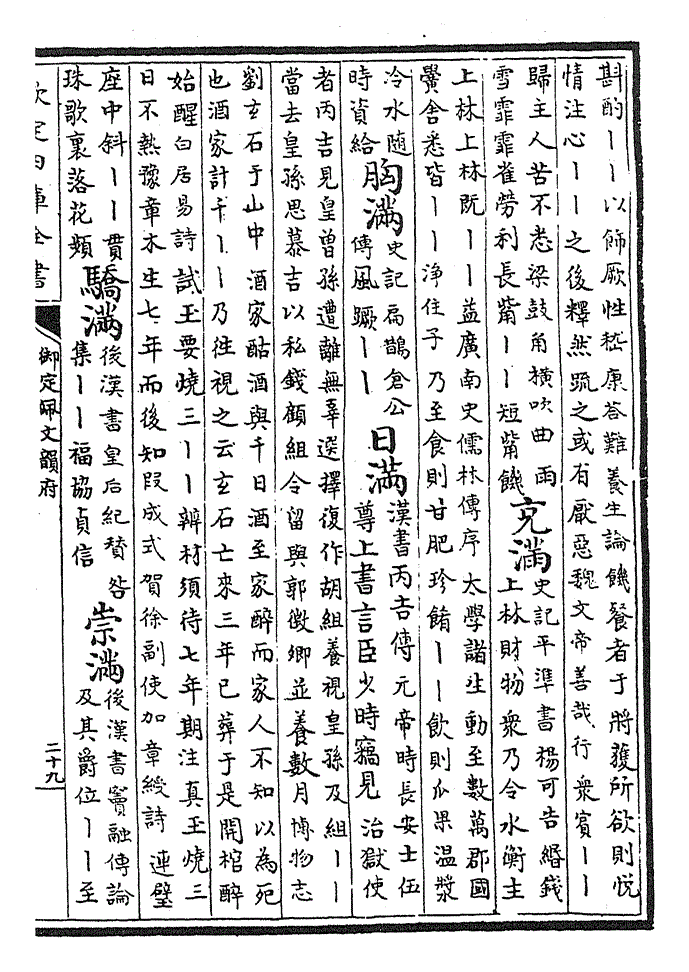 斟酌丨丨以飾厥性嵇康答難養生論饑餐者于將獲所欲則悅
情注心丨丨之後釋然疏之或有厭惡魏文帝善哉行衆賓丨丨
歸主人苦不悉梁鼓角橫吹曲雨
雪霏霏雀勞利長觜丨丨短觜饑
充滿
史記平準書楊可告緡錢
上林財物衆乃令水衡主
上林上林既丨丨益廣南史儒林傳序太學諸生動至數萬郡國
黌舍悉皆丨丨淨住子乃至食則甘肥珍餚丨丨飲則瓜果温漿
冷水隨
時資給
胸滿
史記扁鵲倉公
傳風蹶丨丨
日滿
漢書丙吉傳元帝時長安士伍
尊上書言臣少時竊見治獄使
者丙吉見皇曾孫遭離無辜選擇復作胡組養視皇孫及組丨丨
當去皇孫思慕吉以私錢顧組令留與郭徵卿並養數月博物志
劉玄石于山中酒家酤酒與千日酒至家醉而家人不知以為死
也酒家計千丨丨乃往視之云玄石亡來三年已葬于是開棺醉
始醒白居易詩試玉要燒三丨丨辨材須待七年期注真玉燒三
日不熱豫章木生七年而後知段成式賀徐副使加章綬詩連璧
座中斜丨丨貫
珠歌裏落花頻
驕滿
後漢書皇后紀贊咎
集丨丨福協貞信
崇滿
後漢書竇融傳論
及其爵位丨丨至
欽定四庫全書
御定佩文韻府
二十九